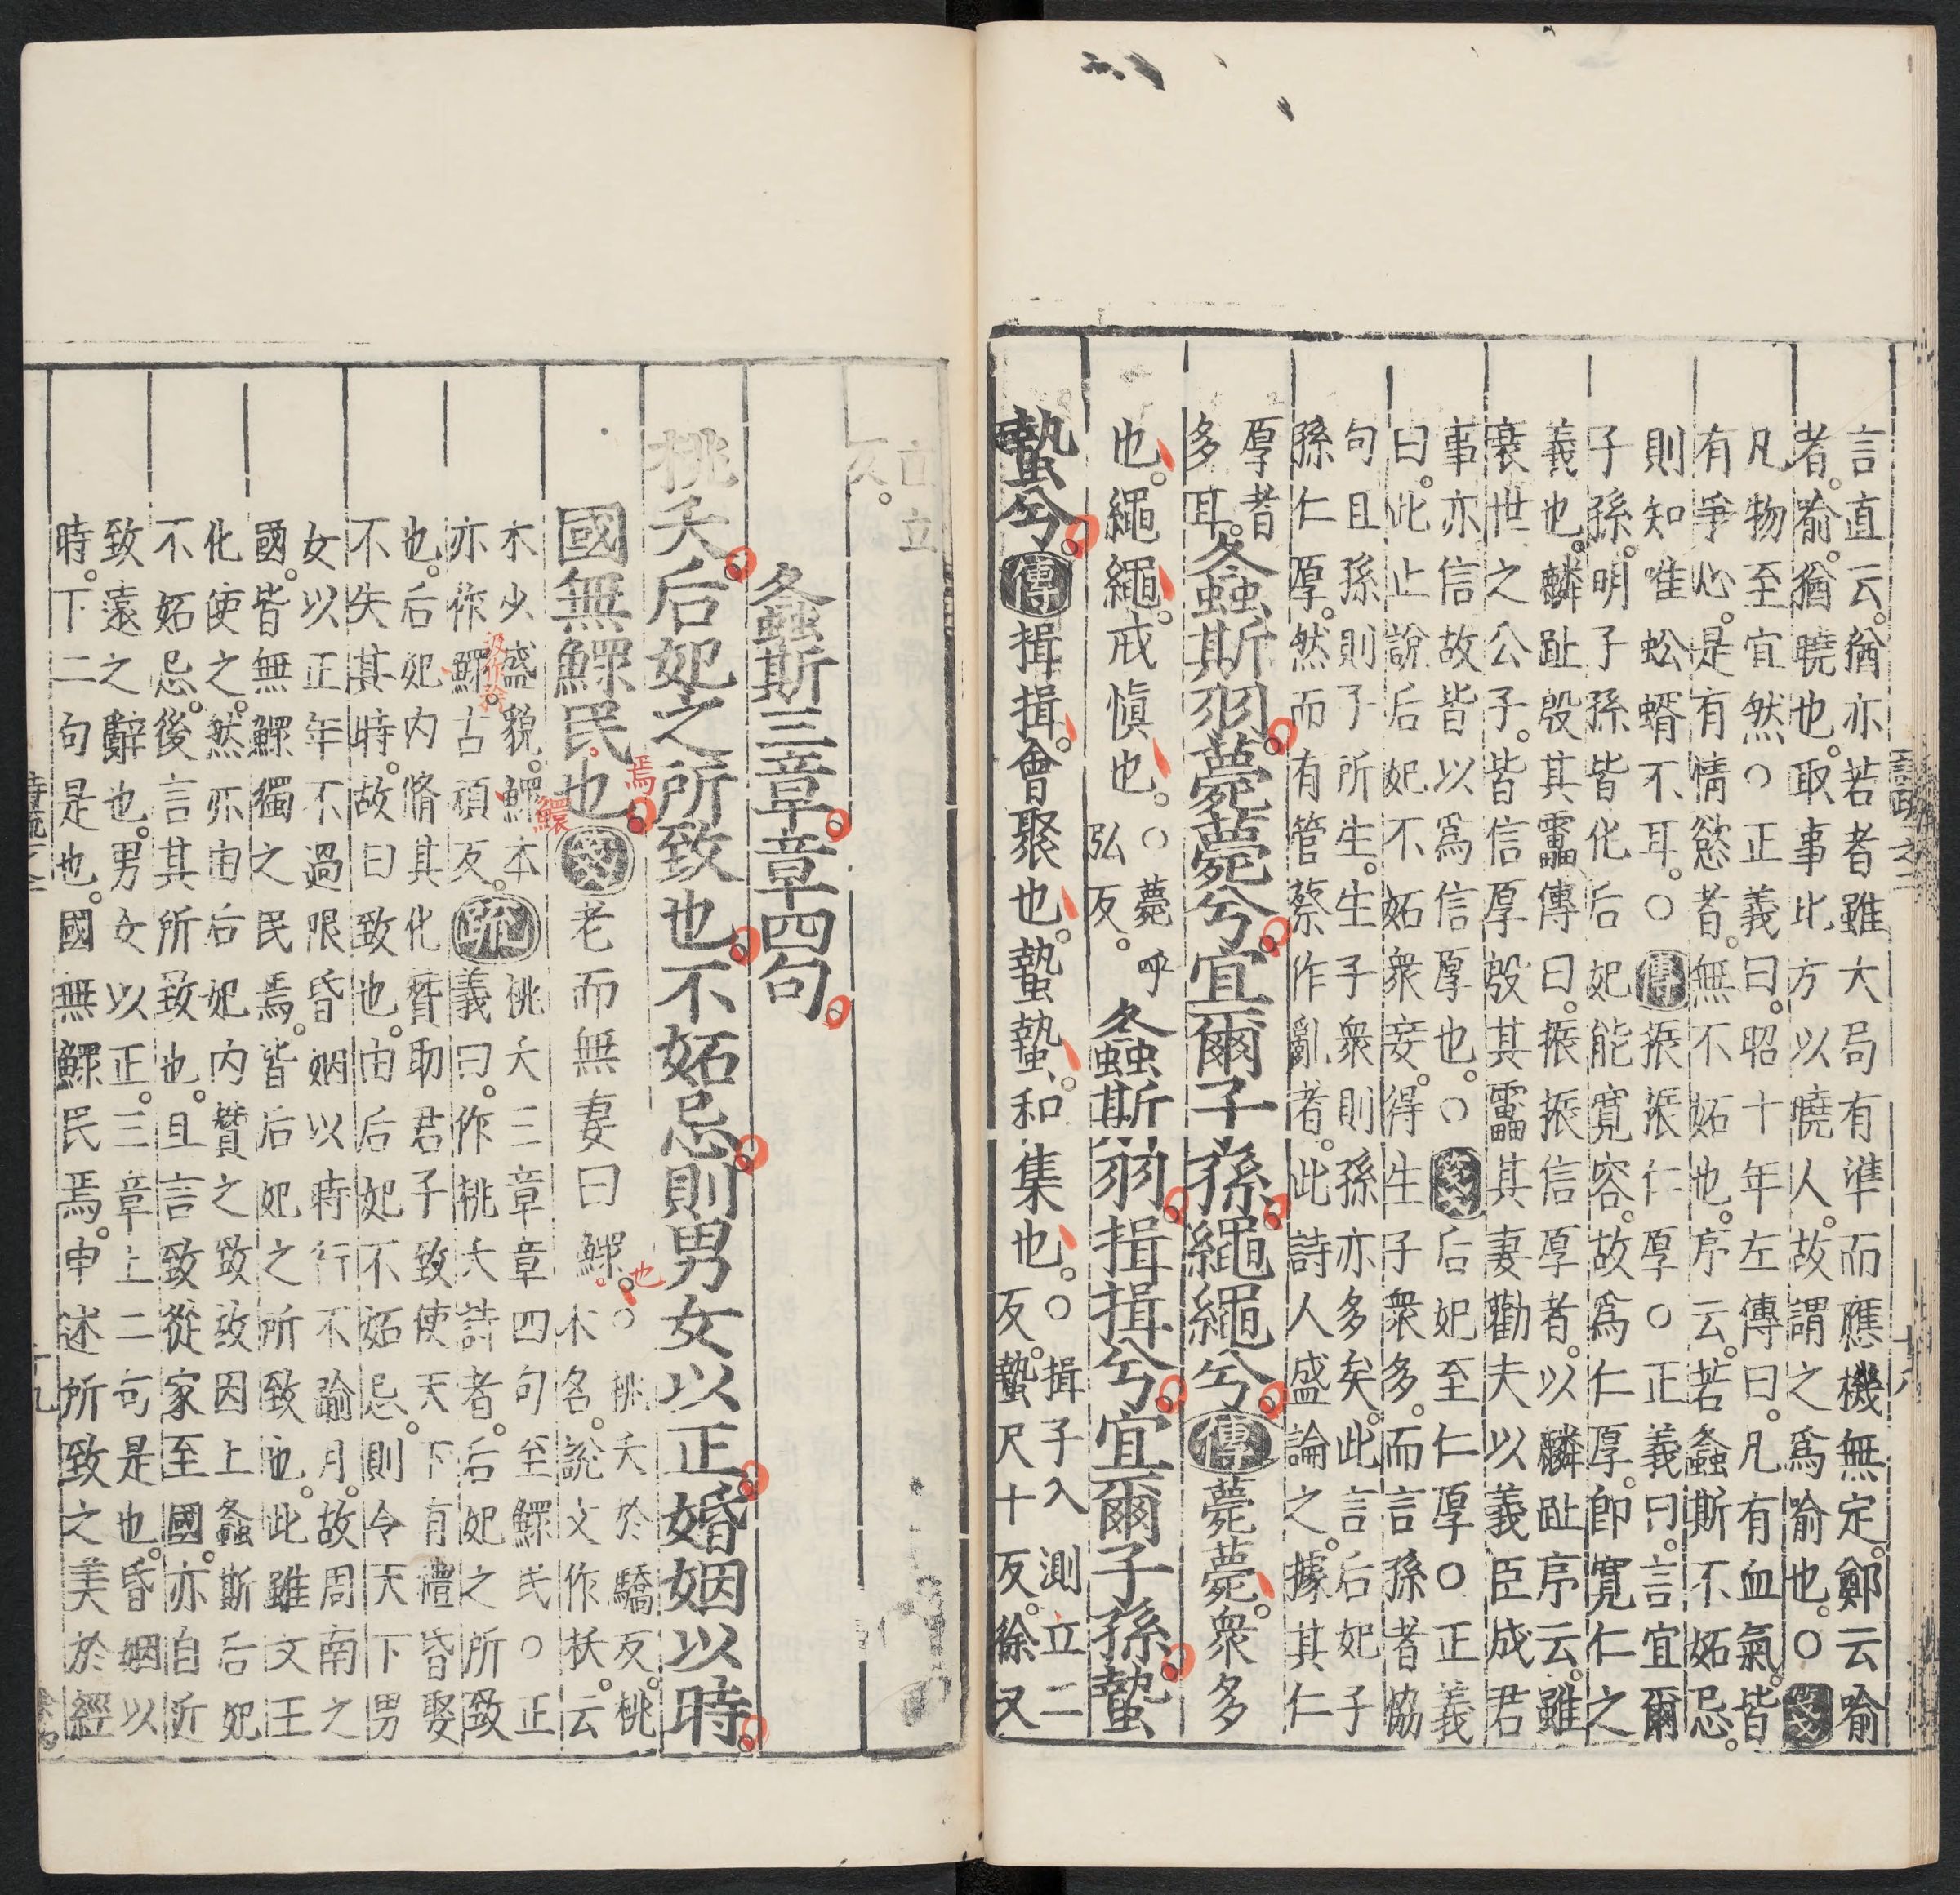 言直云。猶亦若者雖大局有準而應機無定。鄭云喻
者。喻猶曉也。取事比方以曉人。故謂之爲喻也。○箋
凡物至宜然○正義曰。昭十年左傳曰。凡有血氣。皆
有爭心。是有情慾者。無不妬也。序云。若螽斯不妬忌。
則知唯蚣蝑不耳。○傳振振仁厚○正義曰。言宜爾
子孫。明子子孫皆化后妃能寬容。故爲仁厚。即寬仁之
義也。麟趾殷其靁傳曰。振振信厚者。以麟趾序云。雖
衰世之公子。皆信厚殷其靁其妻勸夫以義臣成君
事亦信故皆以爲信厚也。○箋后妃至仁厚○正義
曰。此止說后妃不妬衆妾。得生子衆多。而言孫者協
句且孫則子所生。生子衆則孫亦多矣。此言后妃子
孫仁厚。然而有管蔡作亂者。此詩人盛論之。據其仁
厚者
多耳。
螽斯羽薨薨兮宜爾子孫繩繩兮傳薨薨。衆多
也。繩繩。戒愼也。○薨呼
弘反。
螽斯羽揖揖兮宜爾子孫蟄
蟄兮傳揖揖。會聚也。蟄蟄。和集也。○揖子入測立二
反。蟄尺十反。徐又
直立
反。
螽斯三章章四句
桃夭后妃之所致也不妬忌則男女以正婚姻以時
國無鰥民也箋老而無妻曰鰥。○桃夭於驕反。桃
木名。說文作枖。云
木少盛貌。鰥本
亦作鰥古頑反。
疏桃夭三章章四句至鰥民○正
義曰。作桃夭詩者。后妃之所致
也。后妃內脩其化贊助君子致使天下有禮昏娶
不失其時。故曰致也。由后妃不妬忌。則令天下男
女以正年不過限昏姻以時行不踰月。故周南之
國。皆無鰥獨之民焉。皆后妃之所致也。此雖文王
化使之。然亦由后妃內贊之致故因上螽斯后妃
不妬忌。後言其所致也。且言致從家至國。亦自近
致遠之辭也。男女以正。三章上二句是也。昏姻以
時。下二句是也。國無鰥民焉。申述所致之美於經
焉
鰥
也